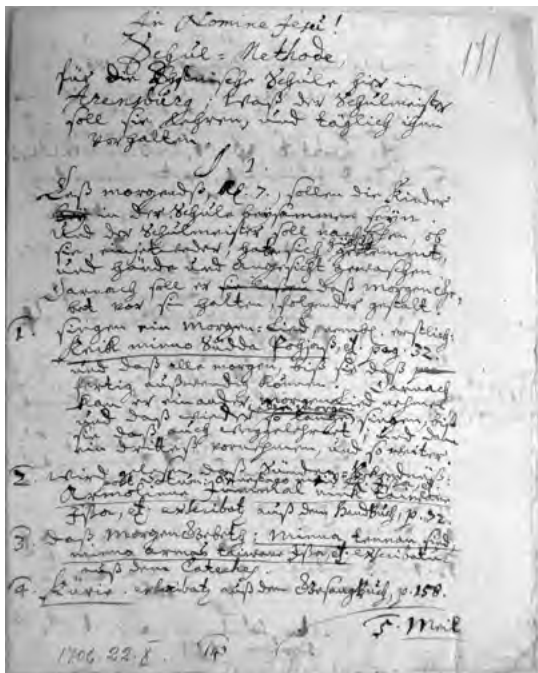 In Nomine Jesu!
Schul-Methode,
für die Ehstnische Schule hier in
Arensburg; waß der Schulmeister
soll sie lehren, und täglich ihnen
vorhalten
§ 1.
Daß morgendß, Kl. 7., sollen die Kinder
in der Schule beysammen seyn.
und der Schulmeister soll nachsehen, ob
sie, ein jeder, habe sich gekämmt,
und Hände und Angesicht gewaschen
Darnach soll er daß morgenGe-
bet vor sie halten, folgender gestalt.
1. singen ein Morgen-Lied, erstlich:
Keik minno Südda Pohjast, pag. 32.
und daß alle morgen, biß sie daß
fertig außwendig können. Darnach
kan er ein ander morgenLied nehmen
und daß singen, biß
sie daß auch und dan
ein dritteß vornehmen, und so weiter.
2. wird daß Sünden-Bekendnüß:
Armolinne Jummal nink
Issa, auß dem Handbuch, p. 32.
3. Daß MorgenGebeth: Minna tennan sind
minno armas taiwane Issa,
auß dem Cateches.
4. Kürie. auß dem Gesangbuch, p. 158.
1706. 22. X.
171